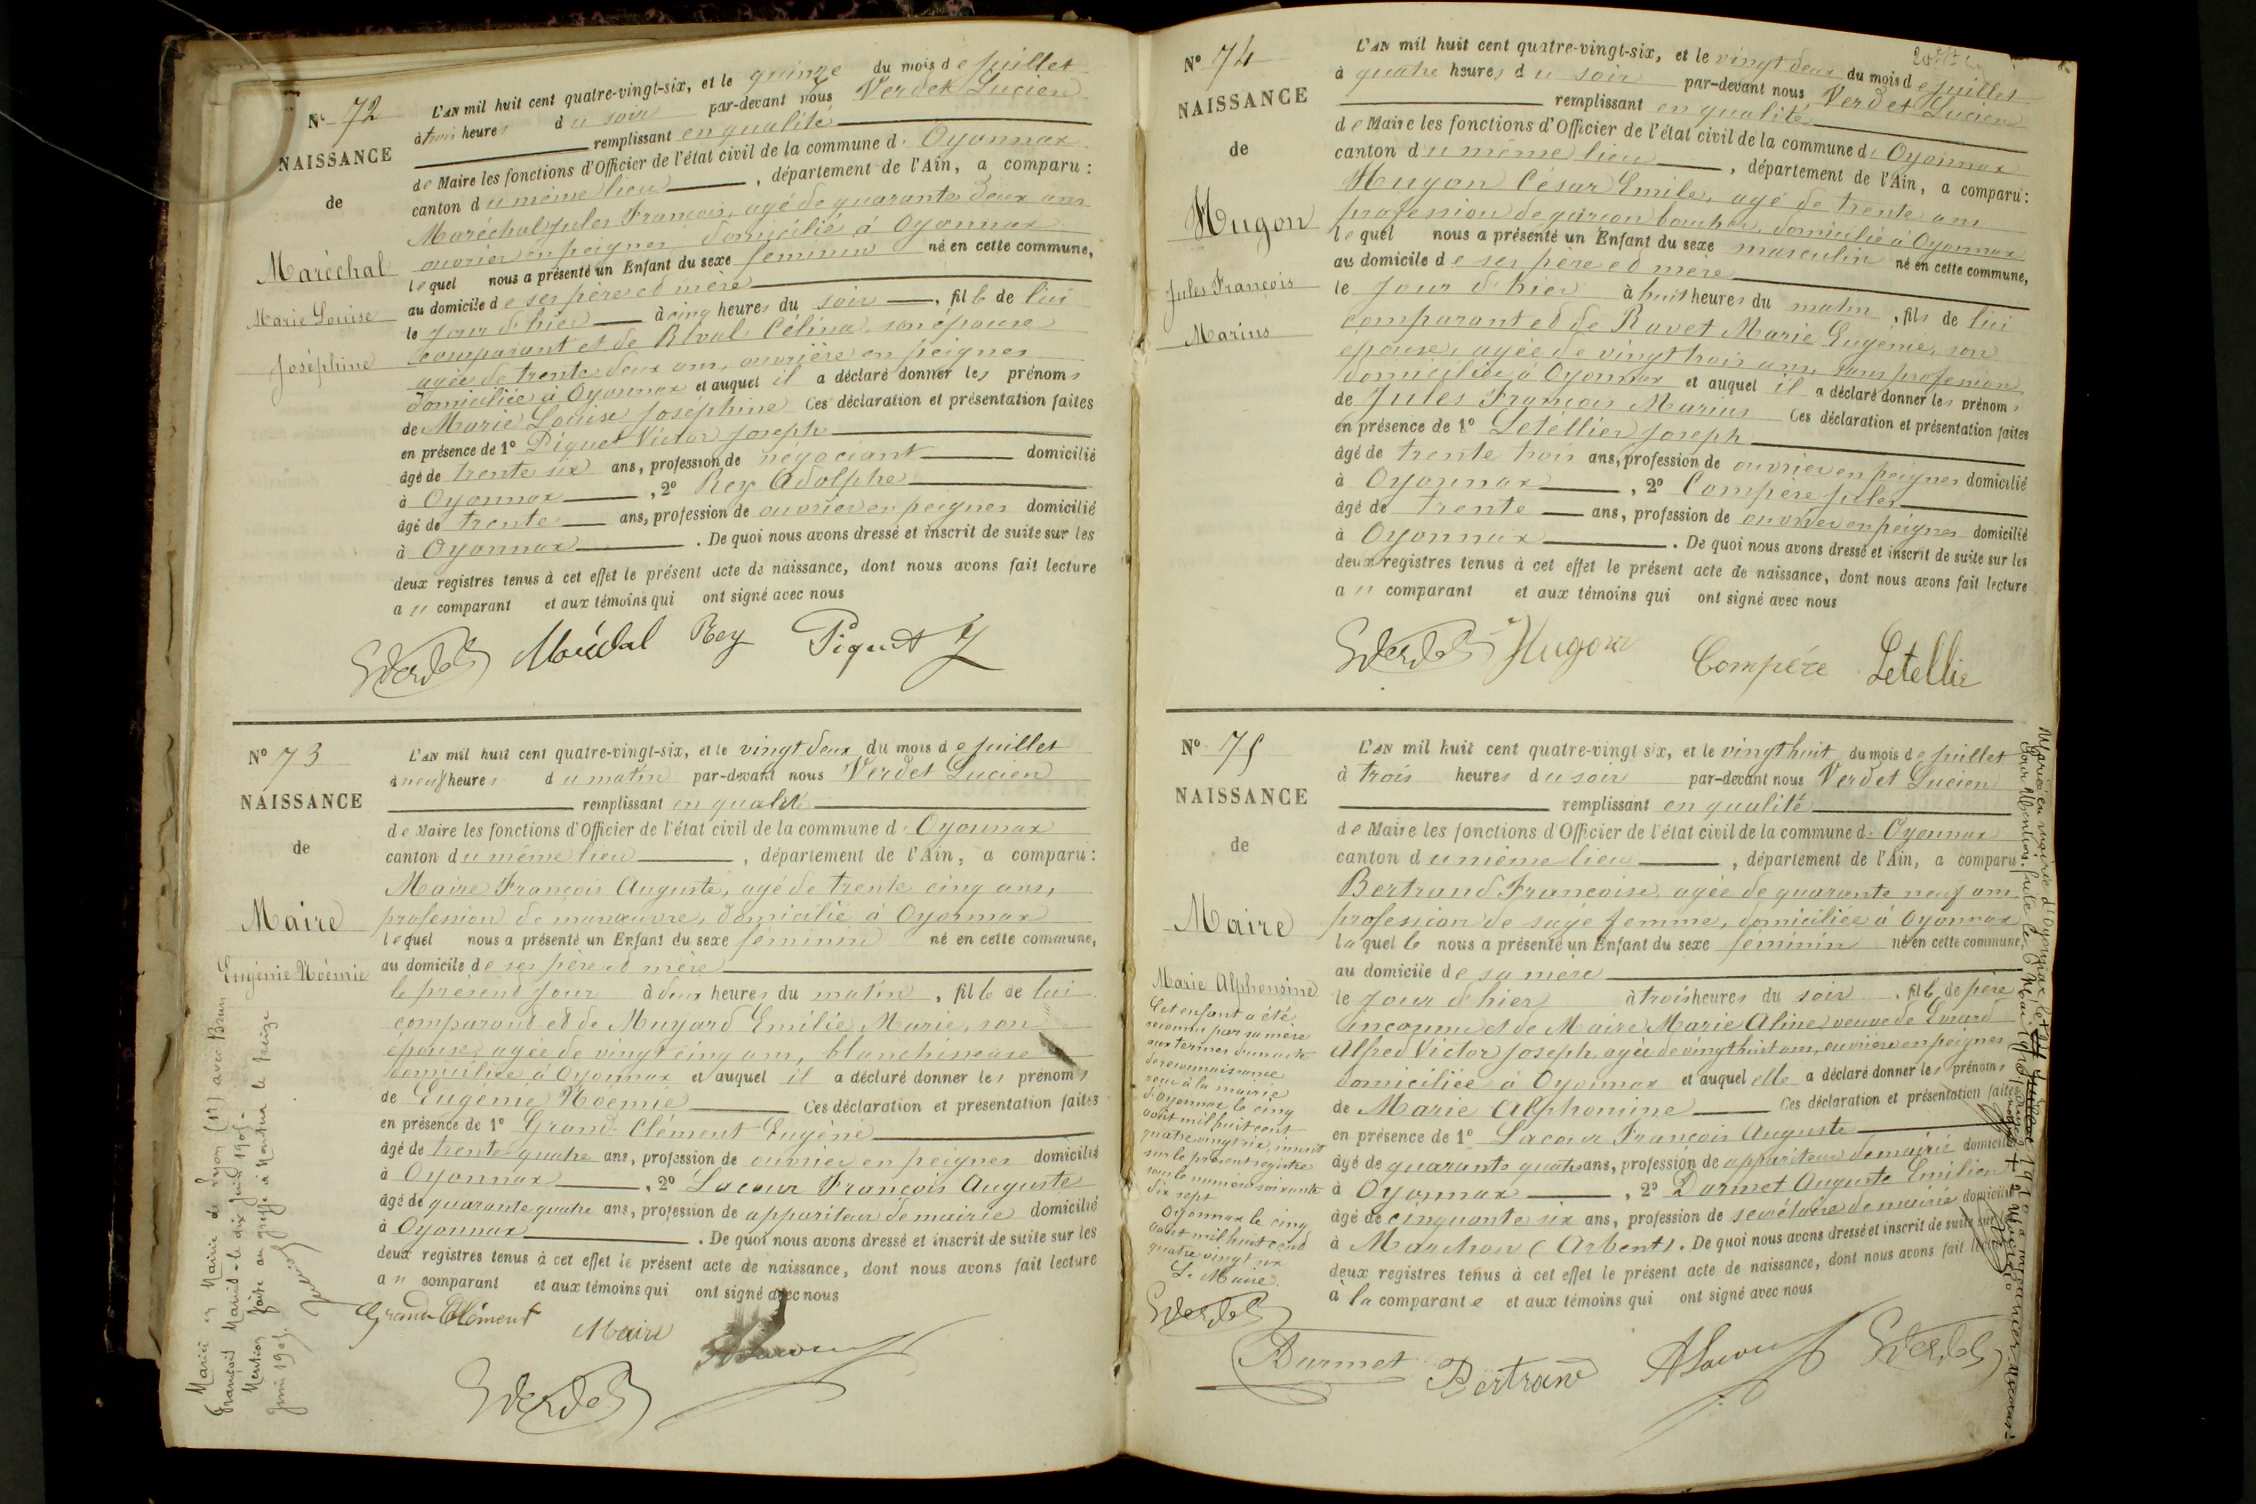 N° 72
NAISSANCE
de
Maréchal
Marie Louise
Joséphine
L'AN mil huit cent quatre-vingt-six, et le quinze du mois de juillet
à trois heures du soir par-devant nous Verdet Lucien
remplissant en qualité
de Maire les fonctions d'Officier de l'état civil de la commune d' Oyonnax
canton du même lieu , département de l'Ain, a comparu :
Maréchal Jules François, agé de quarante deux ans
ouvrier en peignes domicilié à Oyonnax
lequel nous a présenté un Enfant du sexe féminin né en cette commune,
au domicile de ses père et mère
le jour d'hier à cinq heures du soir , fille de lui
comparant et de Réval Célina son épouse
agée de trente deux ans, ouvrière en peignes
domiciliée à Oyonnax et auquel il a déclaré donner les prénoms
de Marie Louise Joséphine Ces déclaration et présentation faites
en présence de 1° Piquet Victor Joseph
âgé de trente six ans, profession de négociant domicilié
à Oyonnax , 2° Rey Adolphe
âgé de trente ans, profession de ouvrier en peignes domicilié
à Oyonnax . De quoi nous avons dressé et inscrit de suite sur les
deux registres tenus à cet effet le présent acte de naissance, dont nous avons fait lecture
au comparant et aux témoins qui ont signé avec nous
Verdet Maréchal Rey Piquet
N° 73
NAISSANCE
de
Maire
Eugénie Noémie
L'AN mil huit cent quatre-vingt-six, et le vingt deux du mois de juillet
à neuf heures du matin par-devant nous Verdet Lucien
remplissant en qualité
de Maire les fonctions d'Officier de l'état civil de la commune d' Oyonnax
canton du même lieu , département de l'Ain, a comparu :
Maire François Auguste, agé de trente cinq ans,
profession de manœuvre, domicilié à Oyonnax
lequel nous a présenté un Enfant du sexe féminin né en cette commune,
au domicile de ses père et mère
le présent jour à deux heures du matin , fille de lui
comparant et de Muyard Emilie Marie, son
épouse, agée de vingt cinq ans, blanchisseuse
domiciliée à Oyonnax et auquel il a déclaré donner les prénoms
de Eugénie Noémie Ces déclaration et présentation faites
en présence de 1° Grand-Clément Eugène
âgé de trente quatre ans, profession de ouvrier en peignes domicilié
à Oyonnax , 2° Lacour François Auguste
âgé de quarante quatre ans, profession de appariteur de mairie domicilié
à Oyonnax . De quoi nous avons dressé et inscrit de suite sur les
deux registres tenus à cet effet le présent acte de naissance, dont nous avons fait lecture
au comparant et aux témoins qui ont signé avec nous
Grand-Clément Maire ALacour
Verdet
Marié en Mairie de Lyon (1er) avec Brun
François Marius - le dix juin 1905 -
Mention faite au greffe à Nantua le treize
Juin 1905.
N° 74
NAISSANCE
de
Hugon
Jules François
Marius
L'AN mil huit cent quatre-vingt-six, et le vingt deux du mois de juillet
à quatre heures du soir par-devant nous Verdet Lucien
remplissant en qualité
de Maire les fonctions d'Officier de l'état civil de la commune d' Oyonnax
canton du même lieu , département de l'Ain, a comparu :
Hugon César Emile, agé de trente ans
profession de garçon boucher, domicilié à Oyonnax
lequel nous a présenté un Enfant du sexe masculin né en cette commune,
au domicile de ses père et mère
le jour d'hier à huit heures du matin , fils de lui
comparant et de Ravet Marie Eugénie, son
épouse, agée de vingt trois ans, sans profession
domiciliée à Oyonnax et auquel il a déclaré donner les prénoms
de Jules François Marius Ces déclaration et présentation faites
en présence de 1° Letellier Joseph
âgé de trente trois ans, profession de ouvrier en peignes domicilié
à Oyonnax , 2° Compère Jules
âgé de trente ans, profession de ouvrier en peignes domicilié
à Oyonnax . De quoi nous avons dressé et inscrit de suite sur les
deux registres tenus à cet effet le présent acte de naissance, dont nous avons fait lecture
au comparant et aux témoins qui ont signé avec nous
Verdet Hugon Compère Letellie
N° 75
NAISSANCE
de
Maire
Marie Alphonsine
Cet enfant a été
reconnu par sa mère
aux termes d'un acte
de reconnaissance
reçu à la mairie
d'Oyonnax le cinq
août mil huit cent
quatre vingt six, inscrit
sur le présent registre
sous le numéro soixante
dix sept
Oyonnax le cinq
août mil huit cent
quatre vingt six
Le Maire
Verdet
L'AN mil huit cent quatre-vingt-six, et le vingt huit du mois de juillet
à trois heures du soir par-devant nous Verdet Lucien
remplissant en qualité
de Maire les fonctions d'Officier de l'état civil de la commune d' Oyonnax
canton du même lieu , département de l'Ain, a comparu
Bertrand Françoise agée de quarante neuf ans
profession de sage femme, domiciliée à Oyonnax
laquelle nous a présenté un Enfant du sexe féminin né en cette commune,
au domicile de sa mère
le jour d'hier à trois heures du soir , fille de père
inconnu et de Maire Marie Aline veuve de Evrard
Alfred Victor Joseph agée de vingt huit ans, ouvrière en peignes
domiciliée à Oyonnax et auquel elle a déclaré donner les prénoms
de Marie Alphonsine Ces déclaration et présentation faites
en présence de 1° Lacour François Auguste
âgé de quarante quatre ans, profession de appariteur de mairie domicilié
à Oyonnax , 2° Darmet Auguste Emilien
âgé de cinquante six ans, profession de secrétaire de mairie domicilié
à Marchon (Arbent). De quoi nous avons dressé et inscrit de suite sur les
deux registres tenus à cet effet le présent acte de naissance, dont nous avons fait lecture
à la comparante et aux témoins qui ont signé avec nous
Darmet Bertrand ALacour Verdet
Mariée en mairie d'Oyonnax, le
Pour Mention faite le